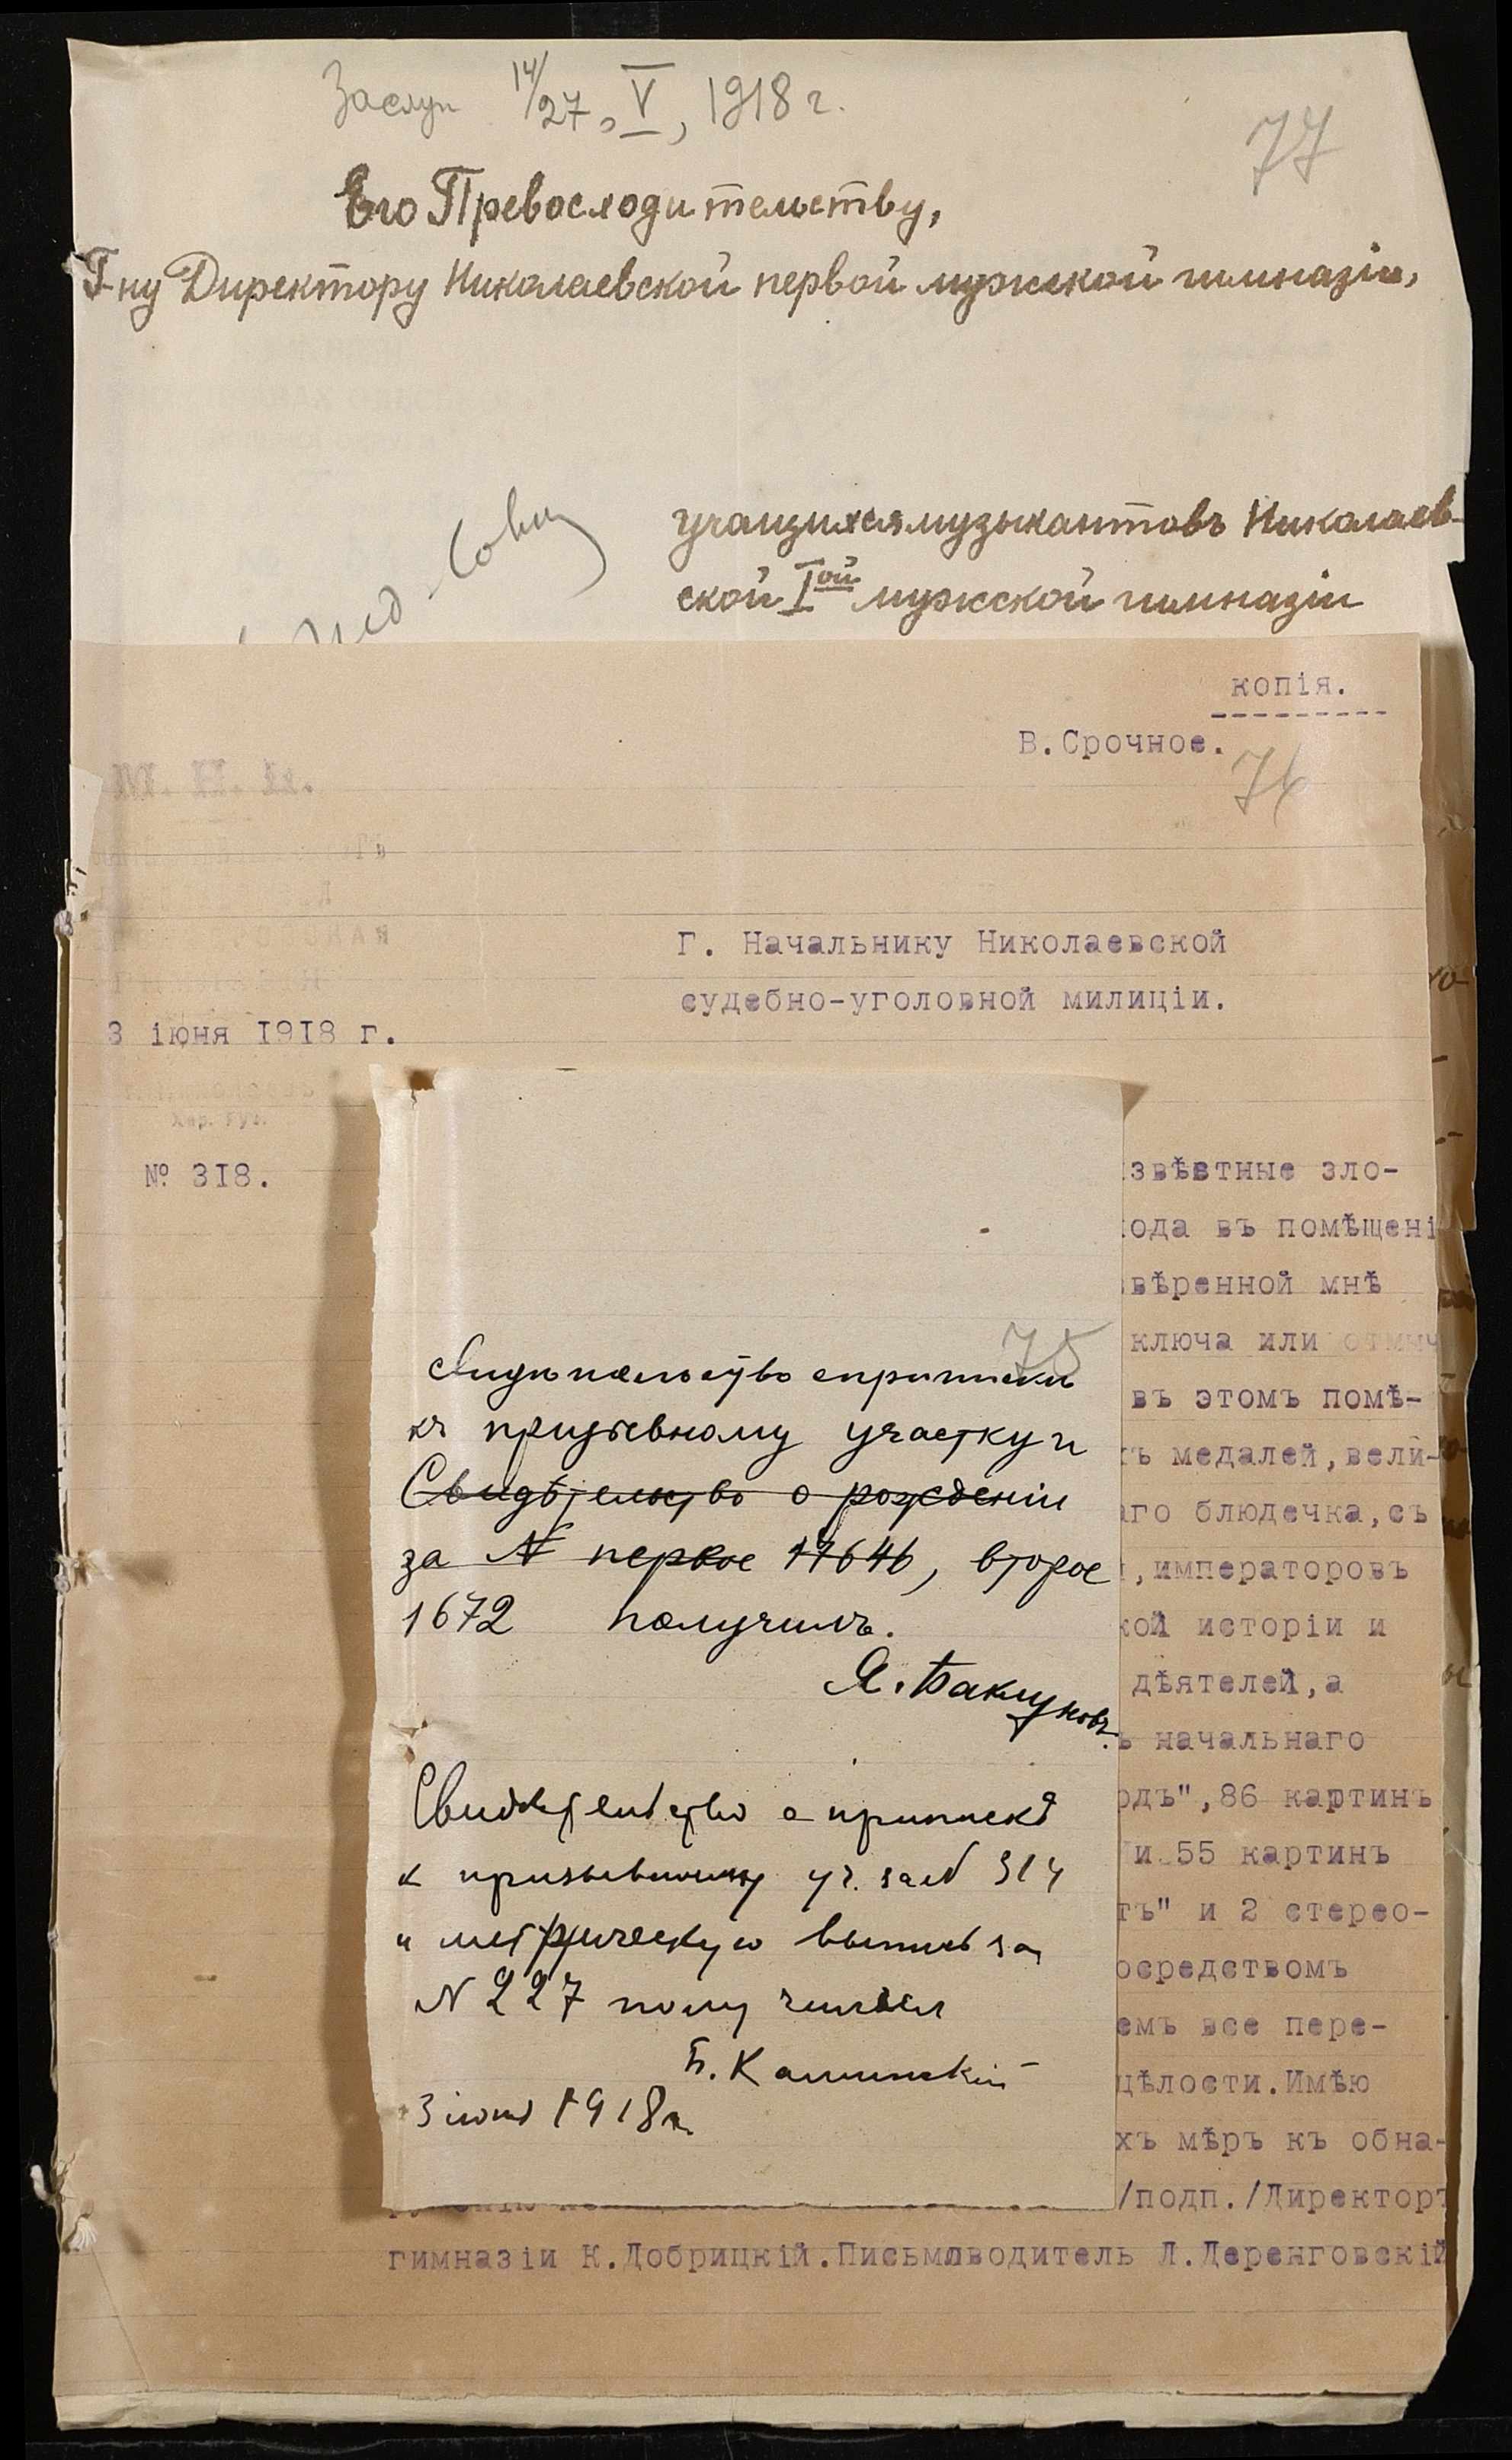 Заслуш 14/27, V, 1918 г.
77
Его Превосходительству,
Г-ну Директору Николаевской первой мужской гимназіи,
учащихся музыкантовъ Николаев-
ской Iой мужской гимназіи
копія.
В.Срочное.
76
М. Н. П.
Г. Начальнику Николаевской
судебно-уголовной милиціи.
3 іюня 1918 г.
Хер. Губ.
№ 318.
звѣстные зло-
ода въ помѣщені
вѣренной мнѣ
ключа или отмыч
въ этомъ помѣ-
ъ медалей,вели-
аго блюдечка,съ
,императоровъ
кой исторіи и
дѣятелей,а
ъ начальнаго
одъ",86 картинъ
и 55 картинъ
тъ" и 2 стерео-
осредствомъ
емъ все пере-
цѣлости.Имѣю
хъ мѣръ къ обна-
/подп./Директоръ
гимназіи К.Добрицкій.Письмоводитель Л.Деренговскій
75
Свидѣтельство о припискѣ
къ призывному участку и
Свидѣтельство о рожденіи
за N первое 17646, второе
1672 получилъ.
Я. Бакуновъ.
Свидѣтельство о припискѣ
к призывному уч. за № 314
и метрическую выпись за
N 227 получил
Б. Каминскій
3 іюня 1918 г.